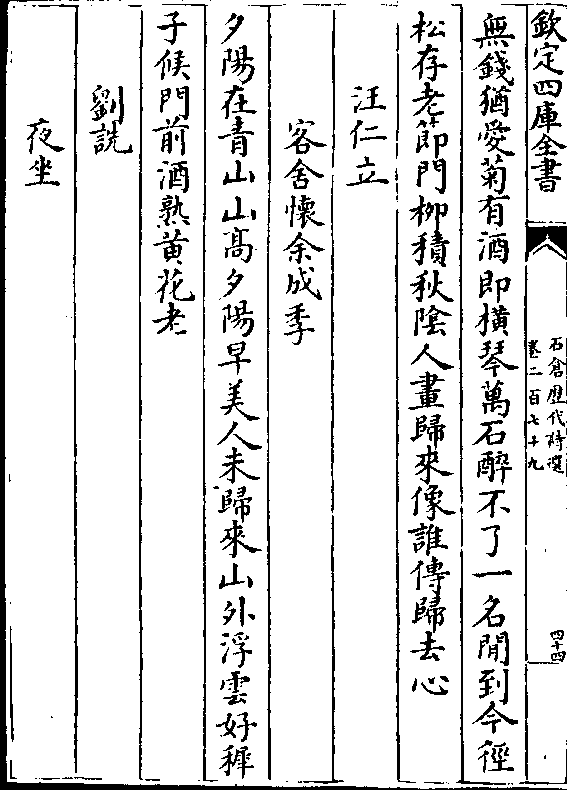 欽定四庫全書
石倉歷代詩選
卷二百七十九
四十四
無錢猶愛菊有酒即橫琴萬石醉不了一名閒到今徑
松存老節門柳積秋陰人畫歸來像誰傳歸去心
汪仁立
客舍懷余成季
夕陽在青山山高夕陽早美人未歸來山外浮雲好稺
子候門前酒熟黄花老
劉詵
夜坐